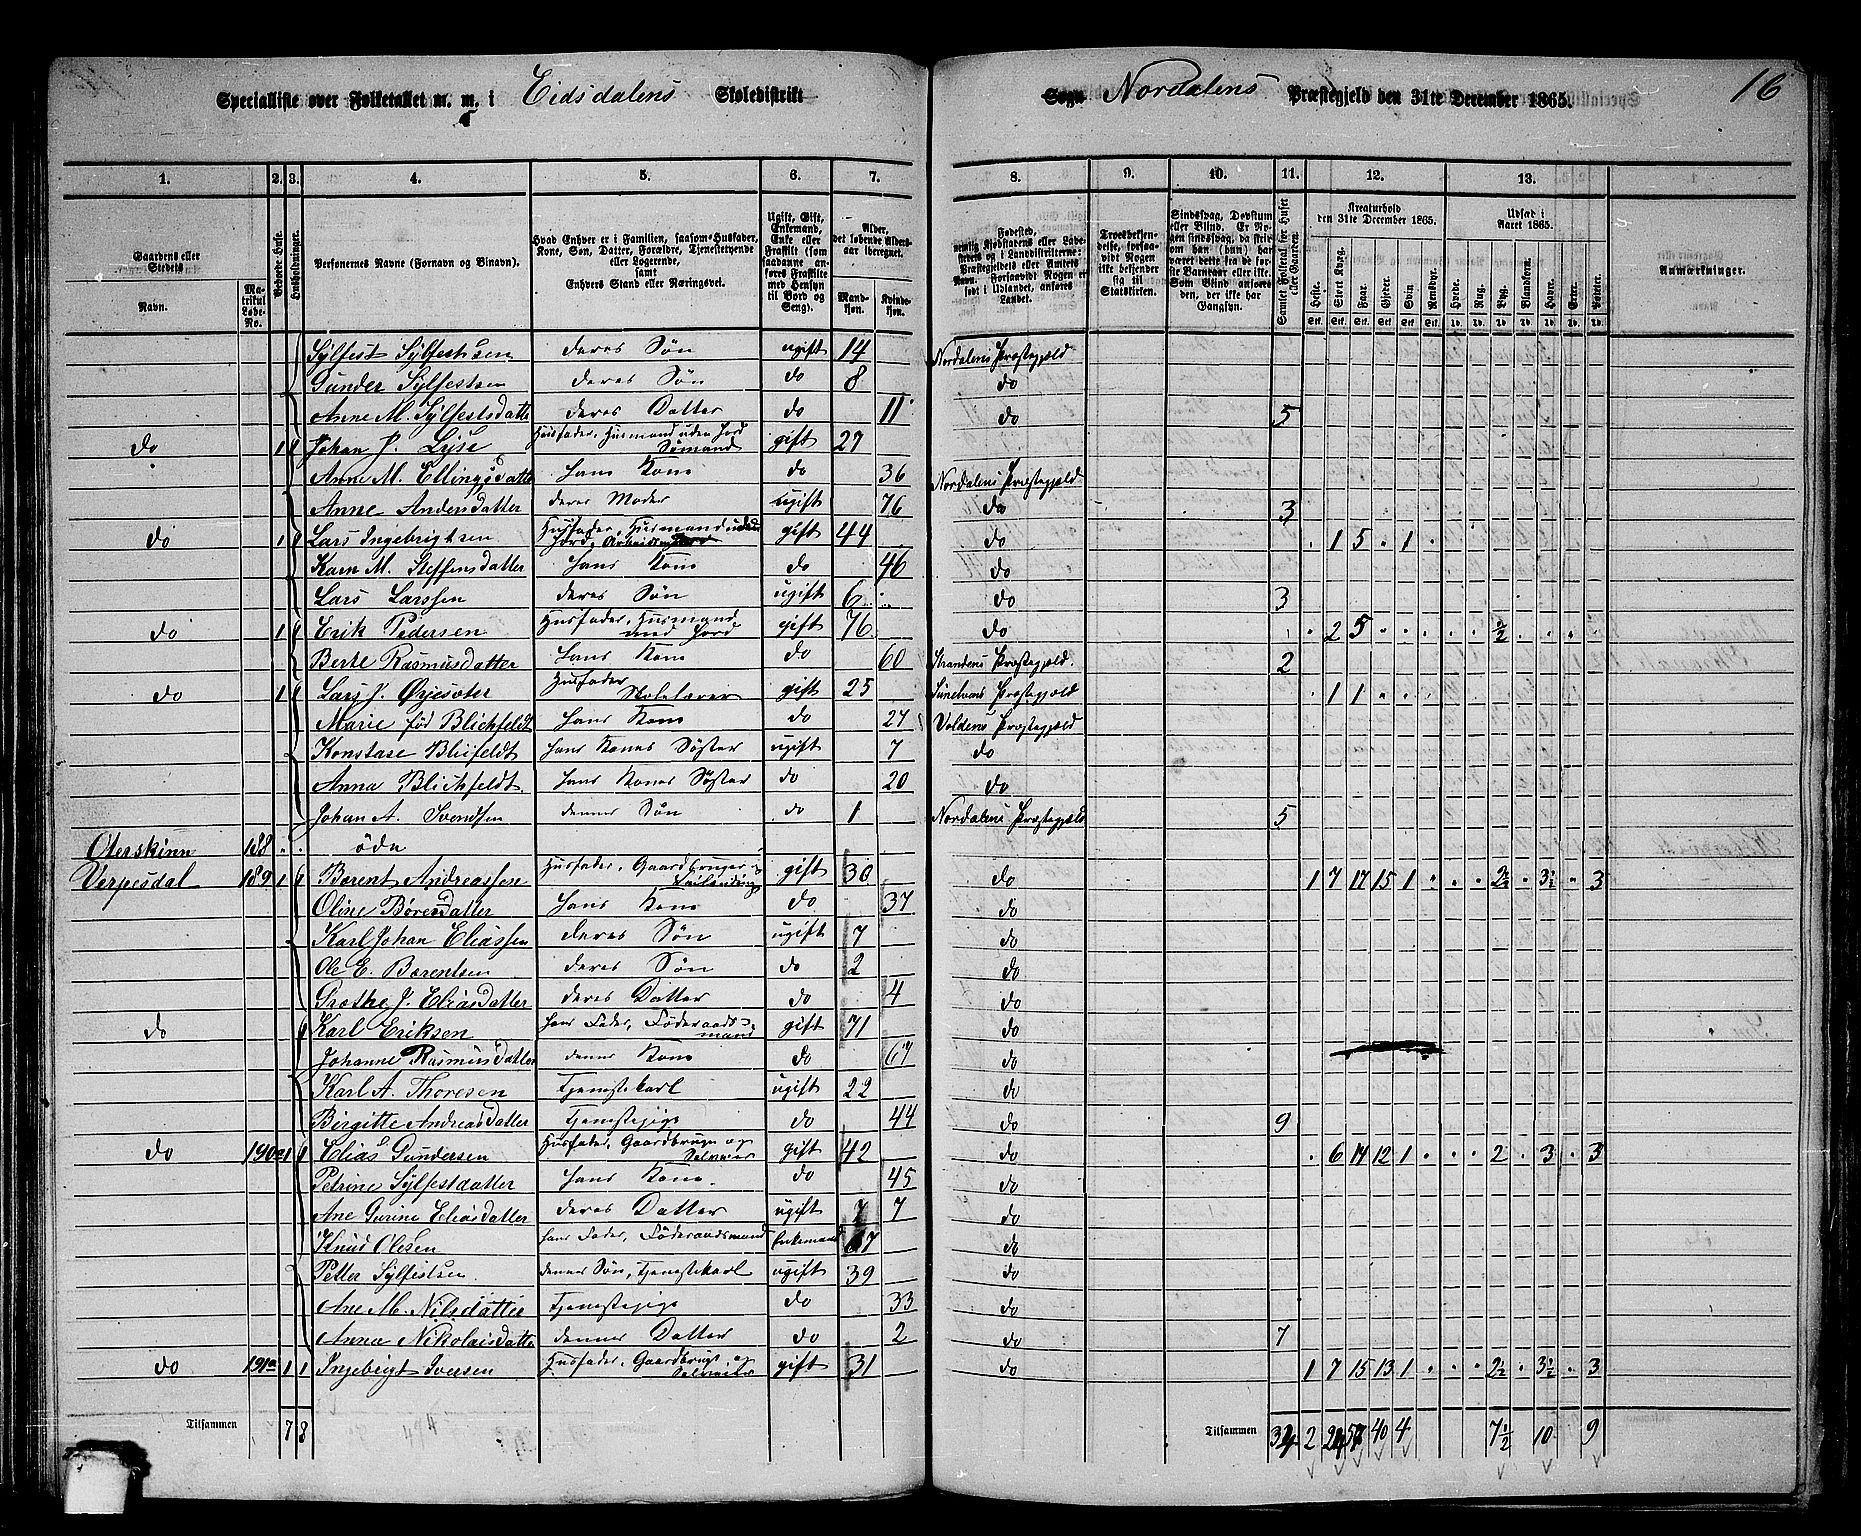 Specialliste over Folketallet m. m. i Eidsdalens Skoledistrikt
Sogn Nordalens Præstegjeld den 31te December 1865.
16
1. 2. 3. 4. 5. 6. 7. 8. 9. 10. 11. 12. 13.
Gaardens eller Stedets
Navn.
Matrikul Løbe-No.
Beboede Huse.
Husholdninger.
Personernes Navne (Fornavn og Binavn).
Hvad Enhver er i Familien, saasom Husfader, Kone, Søn, Datter, Forældre, Tjenestetyende eller Logerende, samt Enhvers Stand eller Næringsvei.
Ugift, Gift, Enkemand, Enke eller Fraskilt (som saadanne anføres Fraskilte med Hensyn til Bord og Seng).
Alder, det løbende Aldersaar iberegnet.
Mandkjøn. Kvindekjøn.
Fødested,
Troesbekjendelse, forsaavidt Nogen ikke bekjender sig til Statskirken.
Sindssvag, Døvstum eller Blind.
Samlet Folketal for Huset eller Gaarden.
Kreaturhold den 31te December 1865.
Udsæd i Aaret 1865.
Heste. Stort Kvæg. Faar. Gjeder. Svin. Rensdyr. Hvede. Rug. Byg. Blandkorn. Havre. Erter. Poteter.
Anmærkninger.
Sylfest Sylfestsen deres Søn ugift 14 Nordalens Præstegjeld
Gunder Sylfestsen deres Søn do 8 do
Anne M. Sylfestsdatter deres Datter do 11 do 5
do 1 1 Johan J. Lyse Husfader, Husmand uden Jord Sømand gift 27
Anne M. Ellingsdatter hans Kone do 36 Nordalens Præstegjeld
Anne Andersdatter deres Moder ugift 76 do 3
do 1 1 Lars Ingebrigtsen Husfader, Husmand uden Jord, gift 44 do 1 5 1
Karn M. Steffensdatter hans Kone do 46 do
Lars Larssen deres Søn ugift 6 do 3
do 1 1 Erik Pedersen Husfader, Husmand med Jord gift 76 do 2 5 ½
Berte Rasmusdatter hans Kone do 60 Strandens Præstegjeld 2
do 1 1 Lars J. Øyesæter Husfader Skolelærer gift 25 Sunelvens Præstegjeld 1 1
Marie fød Blichfeldt hans Kone do 27 Voldens Præstegjeld
Konstase Blifeldt hans Kones Søster ugift 7 do
Anna Blichfeldt hans Kones Søster do 20 do
Johan A. Svendsen dennes Søn do 1 Nordalens Præstegjeld 5
Oterskinn 188 øde
Verpesdal 189 1 1 Bærent Andreassen Husfader, Gaardbruger Leilænding gift 30 do 1 7 17 15 1 2½ 3½ 3
Oline Børesdatter hans Kone do 37 do
Karl Johan Eliassen deres Søn ugift 7 do
Ole E. Bærentsen deres Søn do 2 do
Græthe J. Eliasdatter deres Datter do 4 do
do 1 Karl Eriksen hans Fader, Føderaadsmand gift 71 do
Johanne Rasmusdatter dennes Kone do 67 do
Karl A. Thoresen Tjenestekarl ugift 22 do
Birgitte Andreasdatter Tjenestepige do 44 do 9
do 190a 1 1 Elias Gundersen Husfader, Gaardbruger og Selveier gift 42 do 6 17 12 1 2 3 3
Petrine Sylfestdatter hans Kone do 45 do
Ane Gurine Eliasdatter deres Datter ugift 7 do
Knud Olesen hans Fader, Føderaadsmand Enkemand 67 do
Petter Sylfestsen dennes Søn, Tjenestekarl ugift 39 do
Ane M. Nilsdatter Tjenestepige do 33 do
Anna Nikolaisdatter dennes Datter do 2 do 7
do 191a 1 1 Ingebrigt Iversen Husfader, Gaardbruger og Selveier gift 31 do 1 7 15 13 1 2½ 3½ 3
Tilsammen 7 8
Tilsammen 34 2 24 57 40 4 7½ 10 9